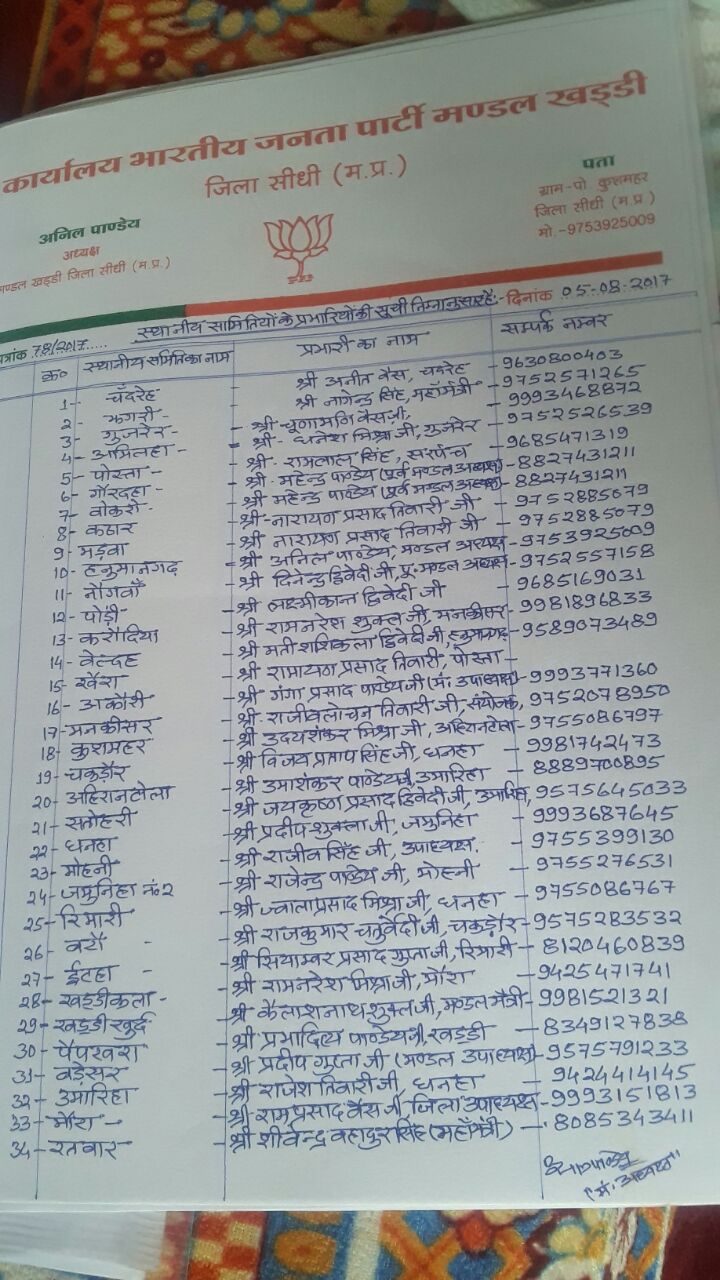 कार्यालय भारतीय जनता पार्टी मण्डल खड्डी
जिला सीधी (म.प्र.)
पता
ग्राम-पो. कुशमहर
जिला सीधी (म.प्र.)
मो.-9753925009
अनिल पाण्डेय
अध्यक्ष
मण्डल खड्डी जिला सीधी (म.प्र.)
पत्रांक 78/2017..... स्थानीय समितियों के प्रभारियों की सूची निम्नानुसार है:- दिनांक 05-08-2017
क्र० स्थानीय समिति का नाम प्रभारी का नाम सम्पर्क नम्बर
1- चँदरेह - श्री अनीत वैस, चंदरेह - 9630800403
2- झगरी - श्री नागेन्द्र सिंह, महामंत्री - 9752571265
3- गुजरेर - श्री चूणामणि वैस जी, - 9993468872
4- अमिलहा - श्री धनेश मिश्रा जी, गुजरेर - 9752526539
5- पोस्ता - श्री रामलाल सिंह, सरपंच - 9685471319
6- गोरदहा - श्री महेन्द्र पाण्डेय (पूर्व मण्डल अध्यक्ष) - 8827431211
7- वोकरो - श्री महेन्द्र पाण्डेय (पूर्व मण्डल अध्यक्ष) - 8827431211
8- कठार - श्री नारायण प्रसाद तिवारी जी - 9752885079
9- मड़वा - श्री नारायण प्रसाद तिवारी जी - 9752885079
10- हनुमानगढ़ - श्री अनिल पाण्डेय, मण्डल अध्यक्ष - 9753925009
11- नौगवाँ - श्री दिनेन्द्र द्विवेदी जी, पू. मण्डल अध्यक्ष - 9752557158
12- पोंड़ी - श्री लक्ष्मीकान्त द्विवेदी जी - 9685169031
13- करौंदिया - श्री रामनरेश शुक्ल जी, मनकीसर - 9981896833
14- वेल्दह - श्री मती शशिकला द्विवेदी जी, हनुमानगढ़ - 9589073489
15- खैरा - श्री रामायण प्रसाद तिवारी, पोस्ता -
16- अकौरी - श्री गंगा प्रसाद पाण्डेय जी (मं. उपाध्यक्ष) - 9993771360
17- मनकीसर - श्री राजीवलोचन तिवारी जी, संयोजक, 9752078950
18- कुशमहर - श्री उदयशंकर मिश्रा जी, अहिरानटोला - 9755086797
19- चकड़ौर - श्री विजय प्रताप सिंह जी, धनहा - 9981742473
20- अहिरानटोला - श्री उमाशंकर पाण्डेय जी, उमरिहा - 8889700895
21- सतोहरी - श्री जयकृष्ण प्रसाद द्विवेदी जी, उमरिहा, 9575645033
22- धनहा - श्री प्रदीप शुक्ला जी, जमुनिहा - 9993687645
23- मोहनी - श्री राजीव सिंह जी, उपाध्यक्ष. - 9755399130
24- जमुनिहा नं० 2 - श्री राजेन्द्र पाण्डेय जी, मोहनी - 9755276531
25- रिमारी - श्री ज्वाला प्रसाद मिश्रा जी, धनहा - 9755086767
26- वरौं - श्री राजकुमार चतुर्वेदी जी, चकड़ौर - 9575283532
27- ईटहा - श्री सियाम्बर प्रसाद गुप्ता जी, रिमारी - 8120460839
28- खड्डीकला - श्री रामनरेश मिश्रा जी, मौरा - 9425471741
29- खड्डीखुर्द - श्री कैलाशनाथ शुक्ल जी, मण्डल मंत्री - 9981521321
30- पैपखरा - श्री प्रभादित्य पाण्डेय जी, खड्डी - 8349127838
31- वड़ेसर - श्री प्रदीप गुप्ता जी (मण्डल उपाध्यक्ष) - 9575791233
32- उमरिहा - श्री राजेश तिवारी जी, धनहा - 9424414145
33- मौरा - श्री रामप्रसाद वैस जी, जिला उपाध्यक्ष - 9993151813
34- रतवार - श्री शीवेन्द्र वहादुर सिंह (महामंत्री) - 8085343411
"मं. अध्यक्ष"